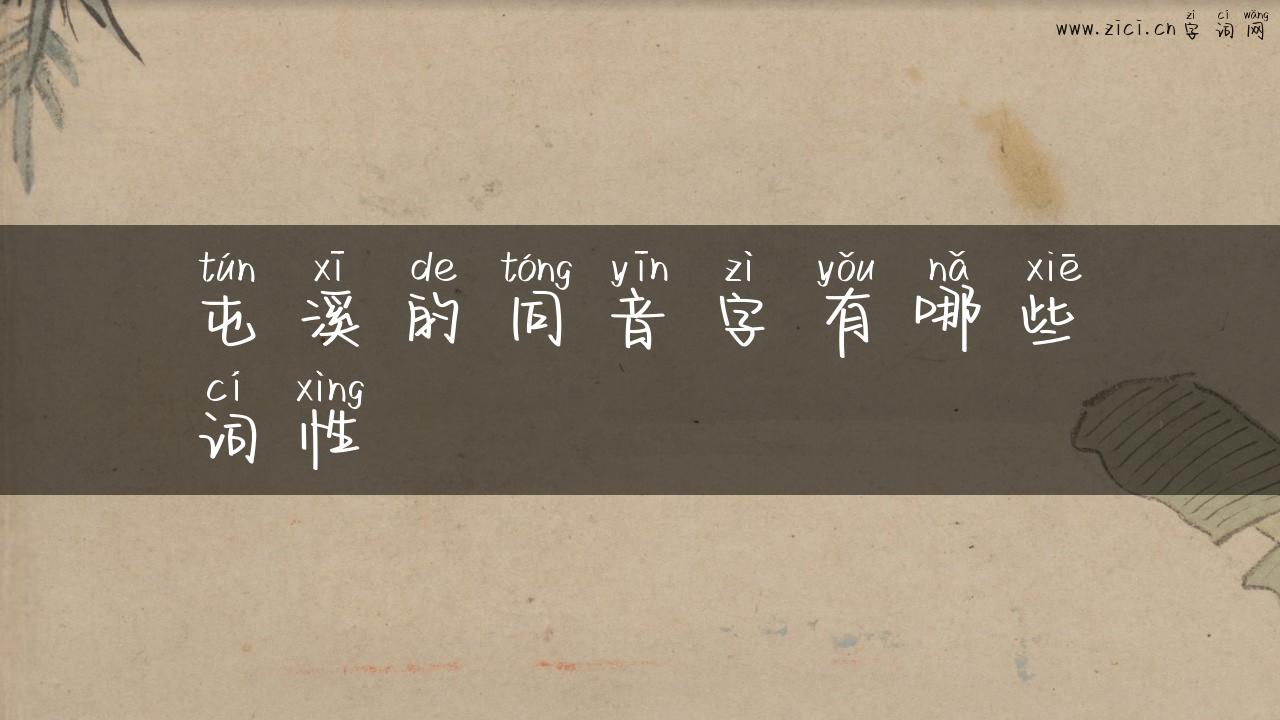 zì cí wǎng
www.zici.cn 字词网
tún xī de tóng yīn zì yǒu nǎ xiē
屯溪的同音字有哪些
cí xìng
词性